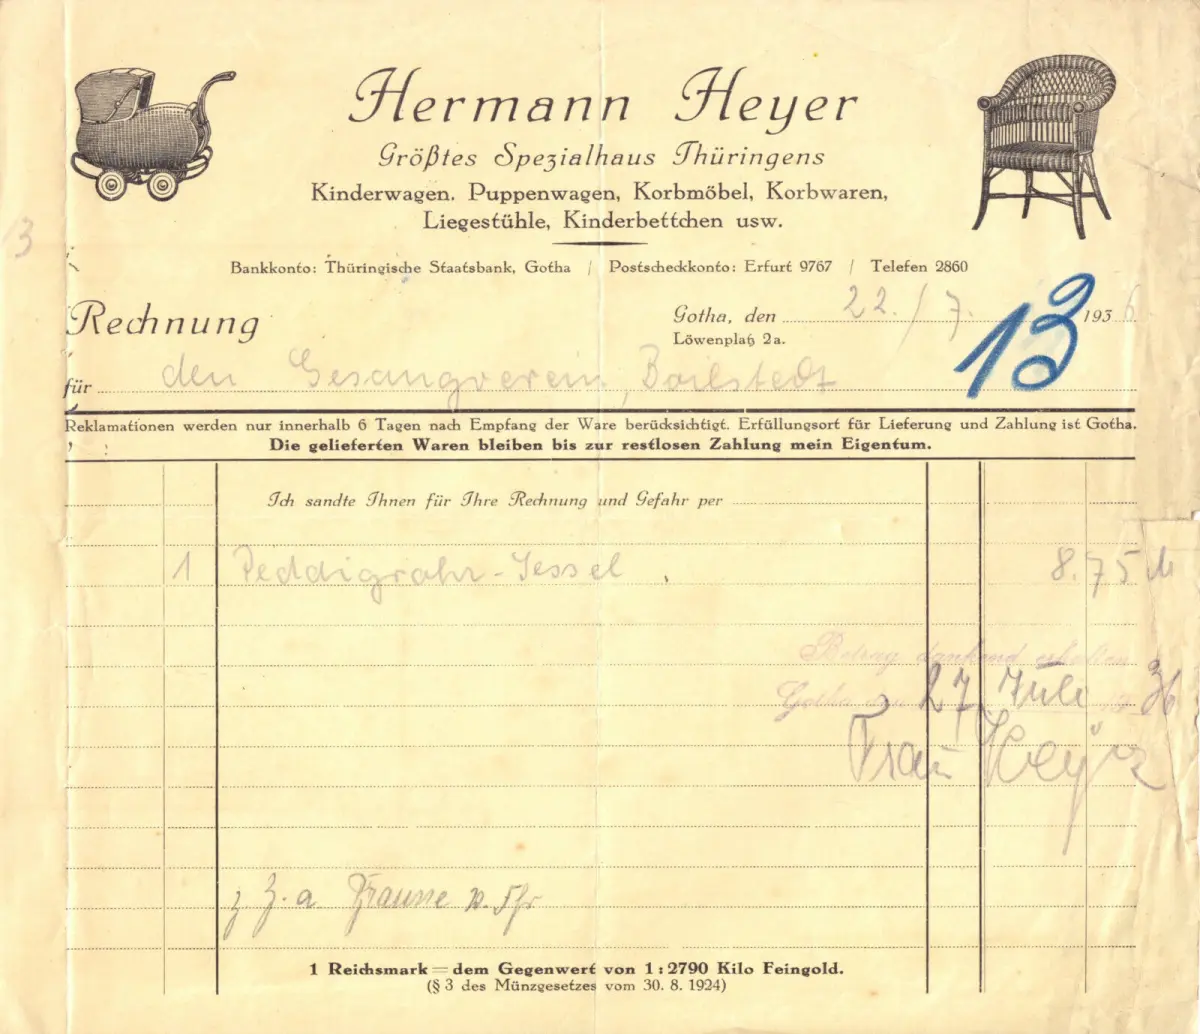 Hermann Heyer
Größtes Spezialhaus Thüringens
Kinderwagen. Puppenwagen, Korbmöbel, Korbwaren,
Liegestühle, Kinderbettchen usw.
Bankkonto: Thüringische Staatsbank, Gotha / Postscheckkonto: Erfurt 9767 / Telefen 2860
13
Rechnung
Gotha, den 22./7. 1936
Löwenplatz 2a.
13
für den Gesangverein, Boilstedt
Reklamationen werden nur innerhalb 6 Tagen nach Empfang der Ware berücksichtigt. Erfüllungsort für Lieferung und Zahlung ist Gotha.
Die gelieferten Waren bleiben bis zur restlosen Zahlung mein Eigentum.
Ich sandte Ihnen für Ihre Rechnung und Gefahr per
1 Peddigrohr-Sessel 8.75 M
Betrag dankend erhalten
Gotha, den 27. Juli 1936
Frau Heyer
z. Z. a.
1 Reichsmark = dem Gegenwert von 1:2790 Kilo Feingold.
(§ 3 des Münzgesetzes vom 30. 8. 1924)